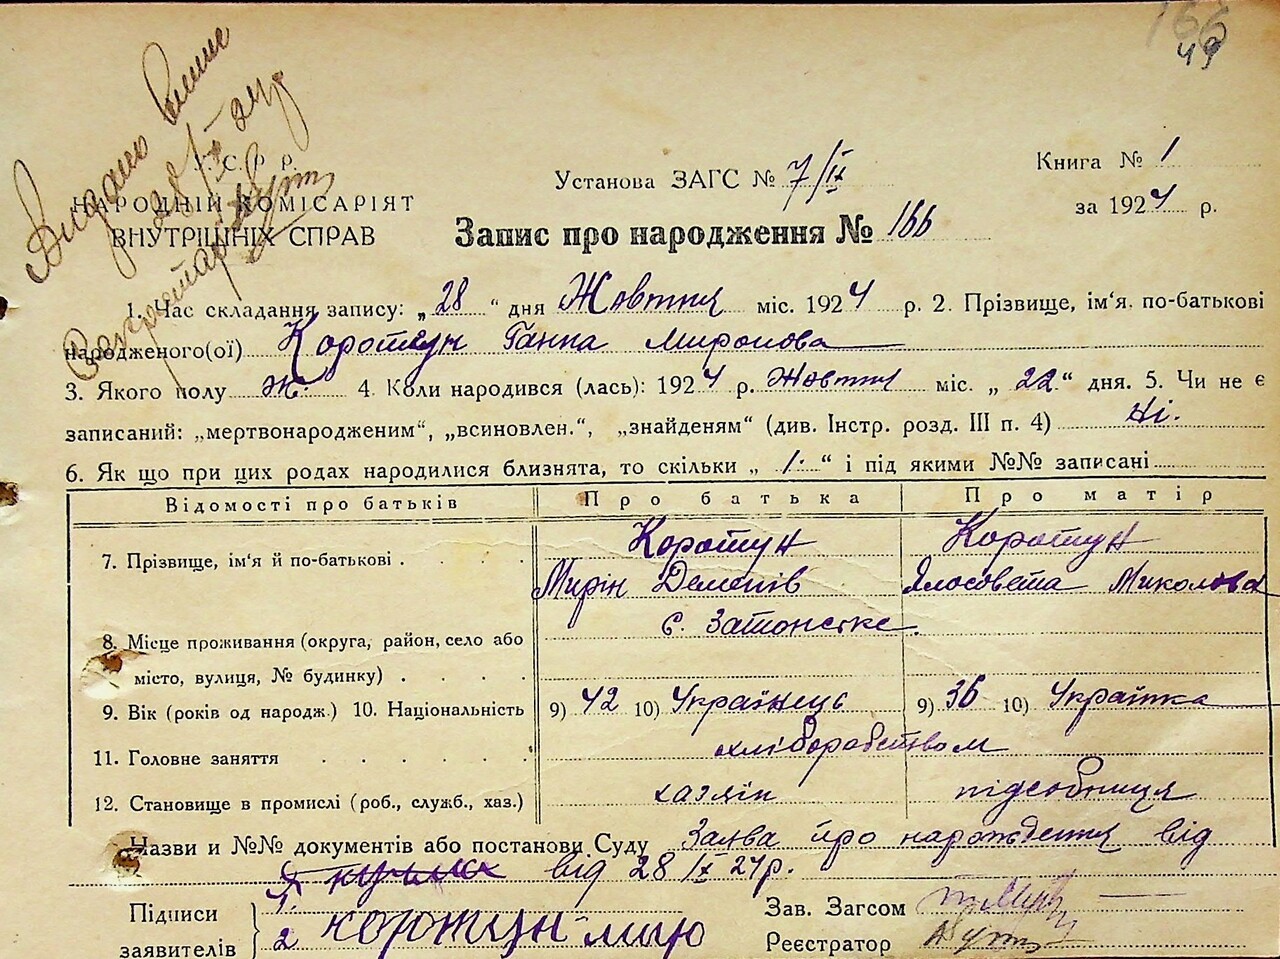 166
49
Видано
28/IX 24 р.
У. С. Р. Р.
НАРОДНІЙ КОМІСАРІЯТ
ВНУТРІШНІХ СПРАВ
Установа ЗАГС № 7/IX
Книга № 1
за 1924 р.
Запис про народження № 166
1. Час складання запису: „28“ дня Жовтня міс. 1924 р. 2. Прізвище, ім'я. по-батькові
народженого(ої) Коротун Ганна Миронова
3. Якого полу ж. 4. Коли народився (лась): 1924 р. Жовтня міс. „22“ дня. 5. Чи не є
записаний: „мертвонародженим“, „всиновлен.“, „знайденям“ (див. Інстр. розд. III п. 4) Ні.
6. Як що при цих родах народилися близнята, то скільки „1.“ і під якими №№ записані
Відомості про батьків Про батька Про матір
7. Прізвище, ім'я й по-батькові Коротун Коротун
Мирін Демепів Ялосовета Миколова
с. Затонське.
8. Місце проживання (округа, район, село або
місто, вулиця, № будинку)
9. Вік (років од народж.) 10. Національність 9) 42 10) Українець 9) 36 10) Українка
11. Головне заняття хліборобством
12. Становище в промислі (роб., служб., хаз.) хазяїн підсобниця
Назви и №№ документів або постанови Суду Заява про народження від
від 28/IX 24р.
Підписи
заявителів
1.
2 Коротун
Зав. Загсом
Реєстратор